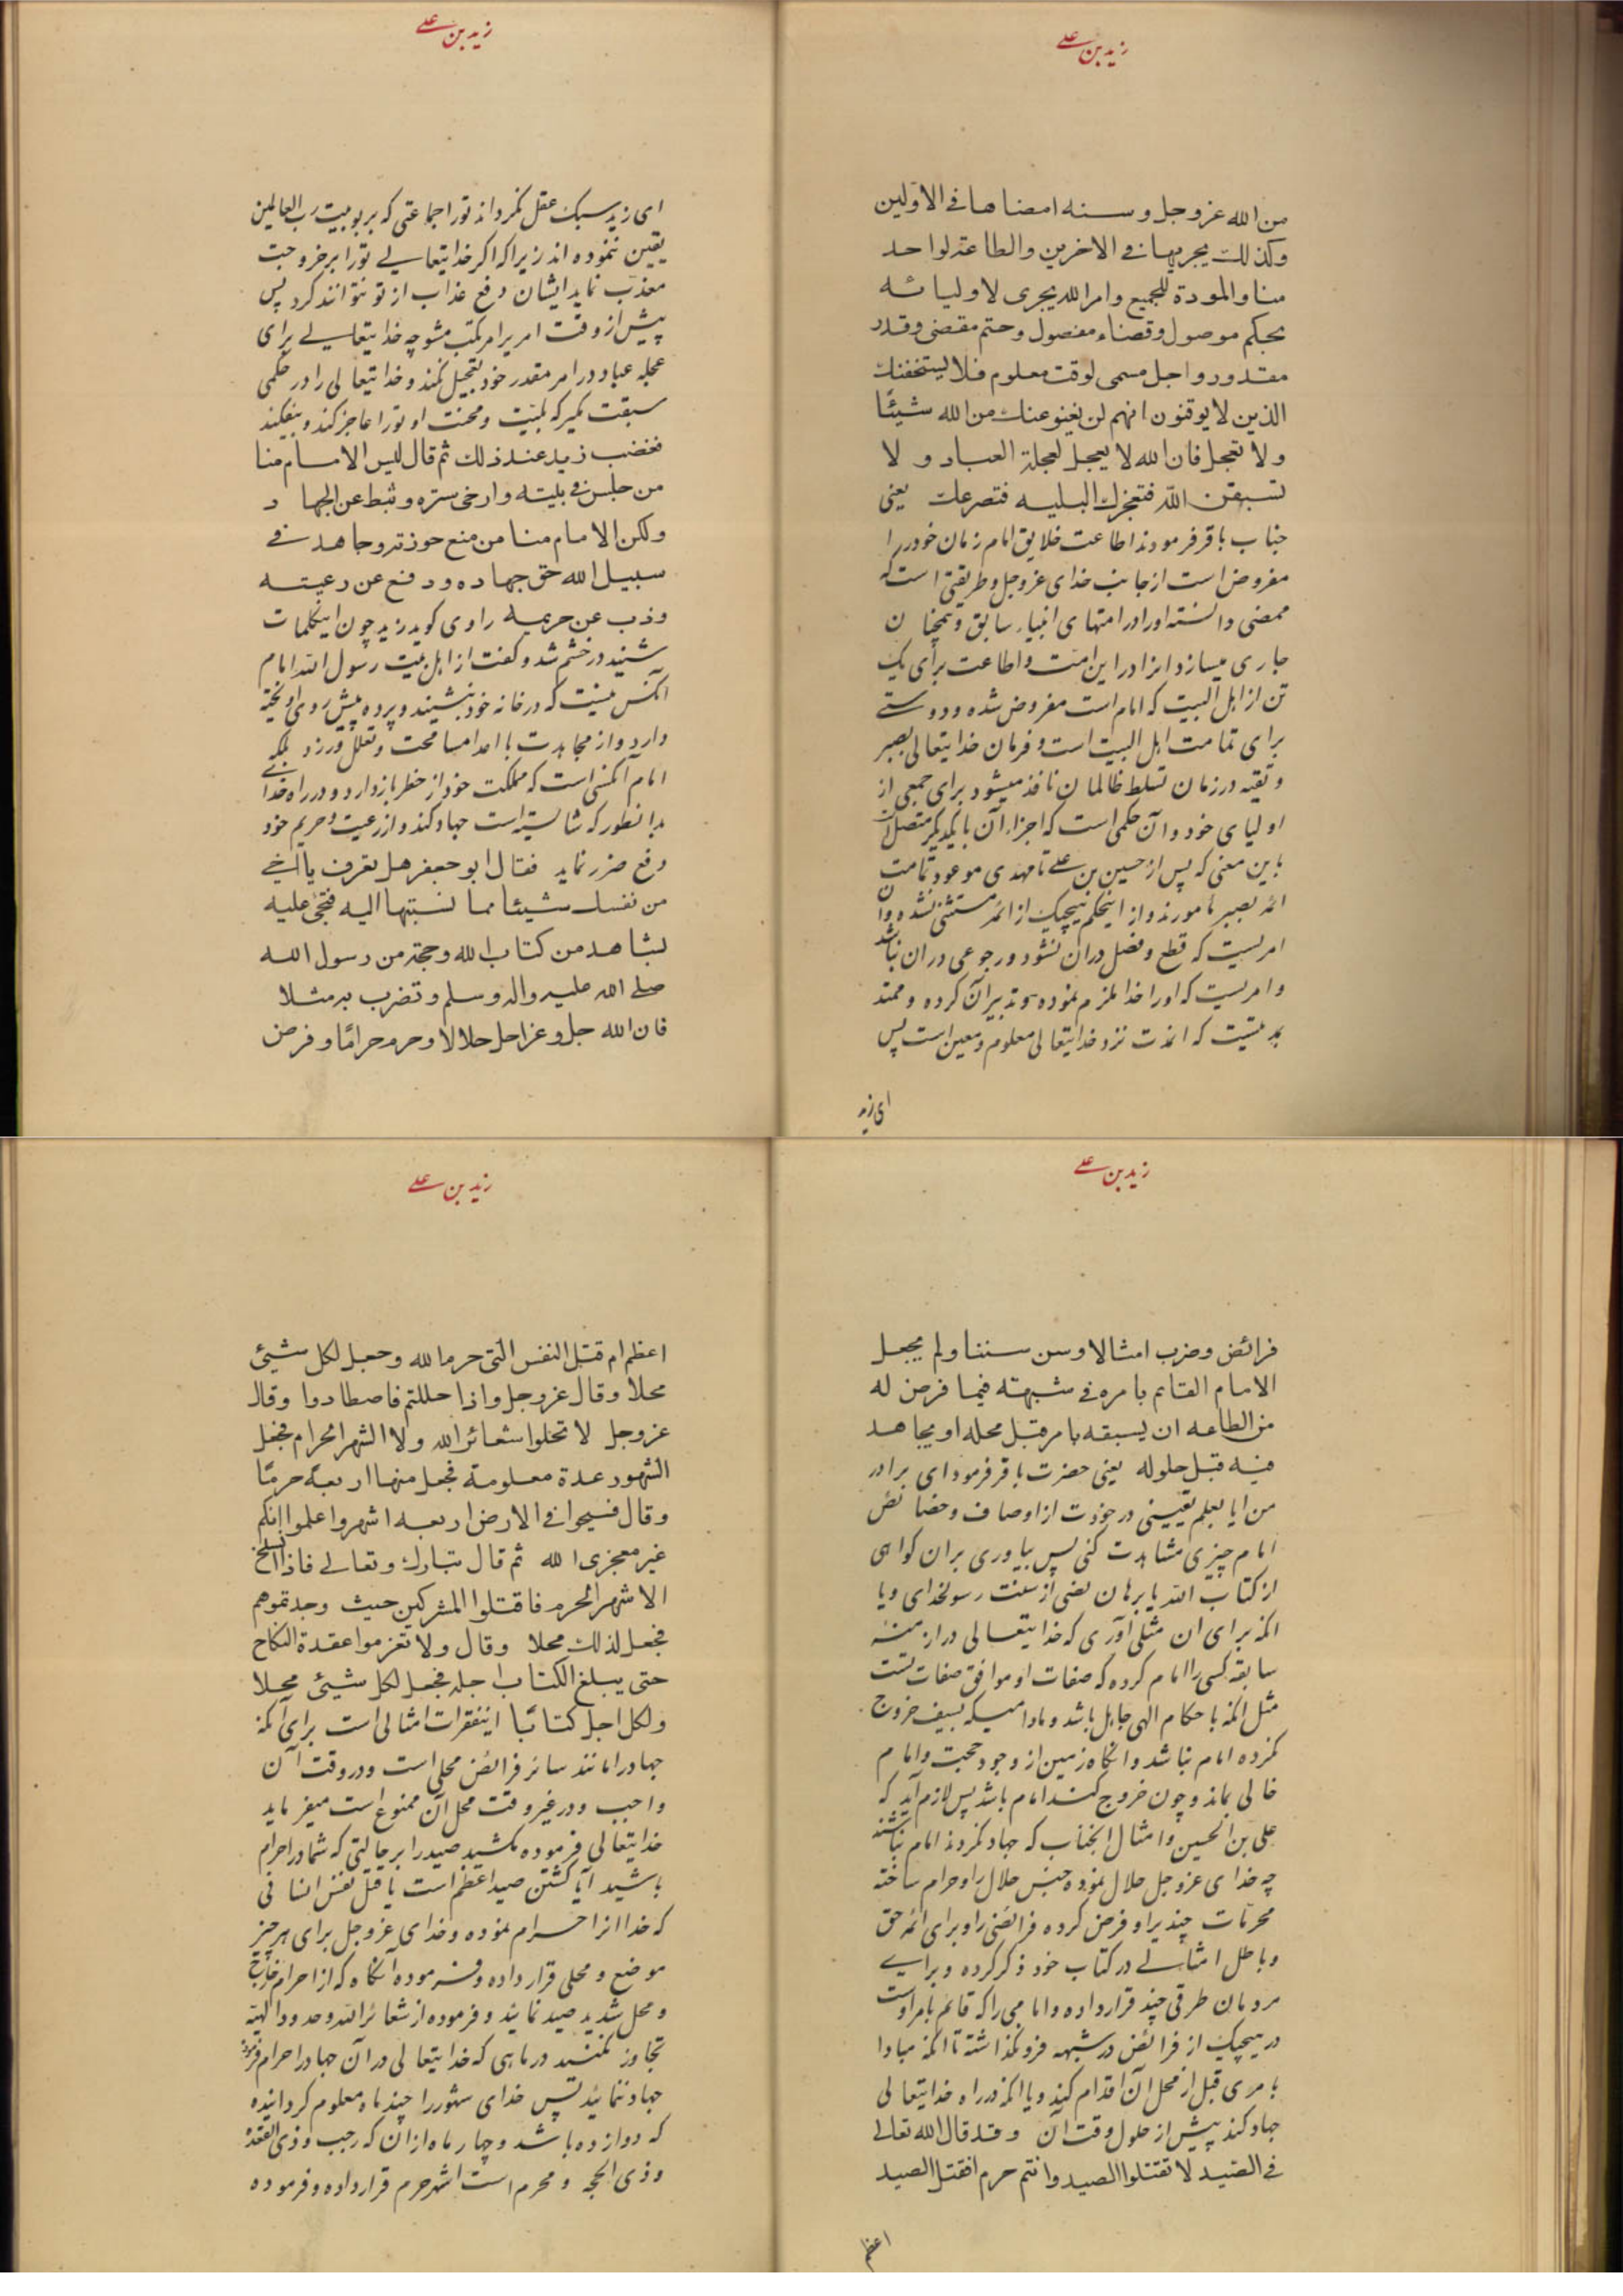 زید بن علے
من الله عزوجل وسنه امضاها فی الاولین
وکذلک یجریها فی الاخرین والطاعة لواحد
منا والمودة للجمیع وامر الله یجری لاولیائه
بحکم موصول وقضاء مفصول وحتم مقضی وقدر
مقدور واجل مسمی لوقت معلوم فلا یستخفنک
الذین لا یوقنون انهم لن یغنو عنک من الله شیئا
ولا تعجل فان الله لا یعجل لعجلة العباد و لا
تسبقن الله فتعجزک البلیه فتصرعک یعنی
جناب باقر فرمودند اطاعت خلایق امام زمان خود را
مفروض است از جانب خدای عزوجل و طریقتی است که
ممضی دانسته او را در امتهای انبیاء سابق و همچنان
جاری میسازد انرا در این امت و اطاعت برای یک
تن از اهل البیت که امام است مفروض شده و دوستے
برای تمامت اهل البیت است و فرمان خدایتعالی بصبر
و تقیه در زمان تسلط ظالمان نافذ میشود برای جمعی از
اولیای خود و آن حکمی است که اجزاء آن بایکدیگر متصل
باین معنی که پس از حسین بن علے تا مهدی موعود تمامت
ائمه بصبر مامورند و از اینحکم هیچیک از ائمه مستثنی نشده وان
امریست که قطع و فصل دران نشود و رجوعی دران نباشد
و امریست که او را خدا ملزم نموده و تدبیر آن کرده و ممتد
بمدتیست که انمدت نزد خدایتعالی معلوم و معین است پس
ای زید
زید بن علے
ای زید سبک عقل نگرداند تو را جماعتی که بربوبیت رب العالمین
یقین ننموده اند زیرا که اکر خدایتعالے تو را بر خروجت
معذب نماید ایشان دفع عذاب از تو نتوانند کرد پس
پیش از وقت امر یرا مرتکب مشو چه خدایتعالے برای
عجله عباد در امر مقدر خود تعجیل نکند و خدایتعالی را در حکمی
سبقت مگیر که بلیت و محنت او تو را عاجز کند و بیفکند
فغضب زید عند ذلک ثم قال لیس الامام منا
من جلس فی بیته وارخی ستره وثبط عن الجهاد
ولکن الامام منا من منع حوزته وجاهد فے
سبیل الله حق جهاده ودفع عن رعیته
وذب عن حریمه راوی کوید زید چون اینکلمات
شنید در خشم شد و کفت از اهل بیت رسول الله امام
آنکس نیست که در خانه خود بنشیند و پرده پیش روی اویخته
دارد و از مجاهدت با اعدا مسامحت و تعلل ورزد بلکه
امام آنکسی است که مملکت خود از خطر باز دارد و در راه خدا
بدانطور که شایسته است جهاد کند و از رعیت و حریم خود
دفع ضرر نماید فقال ابو جعفر هل تعرف یا اخے
من نفسک شیئا مما نسبتها الیه فتجئ علیه
بشاهد من کتاب الله وحجة من رسول الله
صلے الله علیه واله وسلم وتضرب به مثلا
فان الله جل وعز احل حلالا وحرم حراما وفرض
زید بن علے
فرائض وضرب امثالا وسن سننا ولم یجعل
الامام القائم بامره فے شبهته فیما فرض له
من الطاعه ان یسبقه بامر قبل محله او یجاهد
فیه قبل حلوله یعنی حضرت باقر فرمود ای برادر
من ایا بعلم یقینی در خودت از اوصاف و خصائص
امام چیزی مشاهدت کنی پس بیاوری بران کواهی
از کتاب الله یا برهان نصی از سنت رسولخدای و یا
انکه برای ان مثلی آوری که خدایتعالی در ازمنه
سابقه کسی را امام کرده که صفات او موافق صفات تست
مثل انکه باحکام الهی جاهل باشد و مادامیکه بسیف خروج
نکرده امام نباشد و انگاه زمین از وجود حجت و امام
خالی بماند و چون خروج کند امام باشد پس لازم آید که
علی بن الحسین و امثال انجناب که جهاد نکردند امام نباشند
چه خدای عزوجل حلال نموده جنس حلال را و حرام ساخته
محرمات چندیرا و فرض کرده فرائضی را و برای ائمه حق
و باطل امثالے در کتاب خود ذکر کرده و برایے
مردمان طرقی چند قرار داده و امامی را که قائم بامر اوست
در هیچیک از فرائض در شبهه فرو نگذاشته تا انکه مبادا
بامری قبل از محل آن اقدام کند و یا انکه در راه خدایتعالی
جهاد کند پیش از حلول وقت آن وقد قال الله تعالے
فے الصید لا تقتلوا الصید وانتم حرم افقتل الصید
اعظم
زید بن علے
اعظم ام قتل النفس التی حرم الله وجعل لکل شیئ
محلا وقال عزوجل واذا حللتم فاصطادوا وقال
عزوجل لا تحلوا شعائر الله ولا الشهر الحرام فجعل
الشهور عدة معلومة فجعل منها اربعة حرما
وقال فسیحوا فی الارض اربعه اشهر واعلموا انکم
غیر معجزی الله ثم قال تبارک وتعالے فاذا انسلخ
الاشهر الحرم فاقتلوا المشرکین حیث وجدتموهم
فجعل لذلک محلا وقال ولا تعزموا عقدة النکاح
حتی یبلغ الکتاب اجله فجعل لکل شیئ محلا
ولکل اجل کتابا اینفقرات امثالی است برای آنکه
جهاد را مانند سائر فرائض محلی است و در وقت آن
واجب و در غیر وقت محل آن ممنوع است میفرماید
خدایتعالی فرموده مکشید صید را بر حالتی که شما در احرام
باشید آیا کشتن صید اعظم است یا قتل نفس انسانی
که خدا انرا حرام نموده و خدای عزوجل برای هر چیز
موضع و محلی قرار داده و فرموده انگاه که از احرام خارج
و محل شدید صید نمائید و فرموده از شعائر الله و حدود الهیه
تجاوز نکنید در ماهی که خدایتعالی در آن جهاد را حرام فرموده
جهاد ننمائید پس خدای شهور را چند ماه معلوم کردانیده
که دوازده باشد و چهار ماه ازان که رجب و ذی القعده
و ذی الحجه و محرم است اشهر حرم قرار داده و فرموده